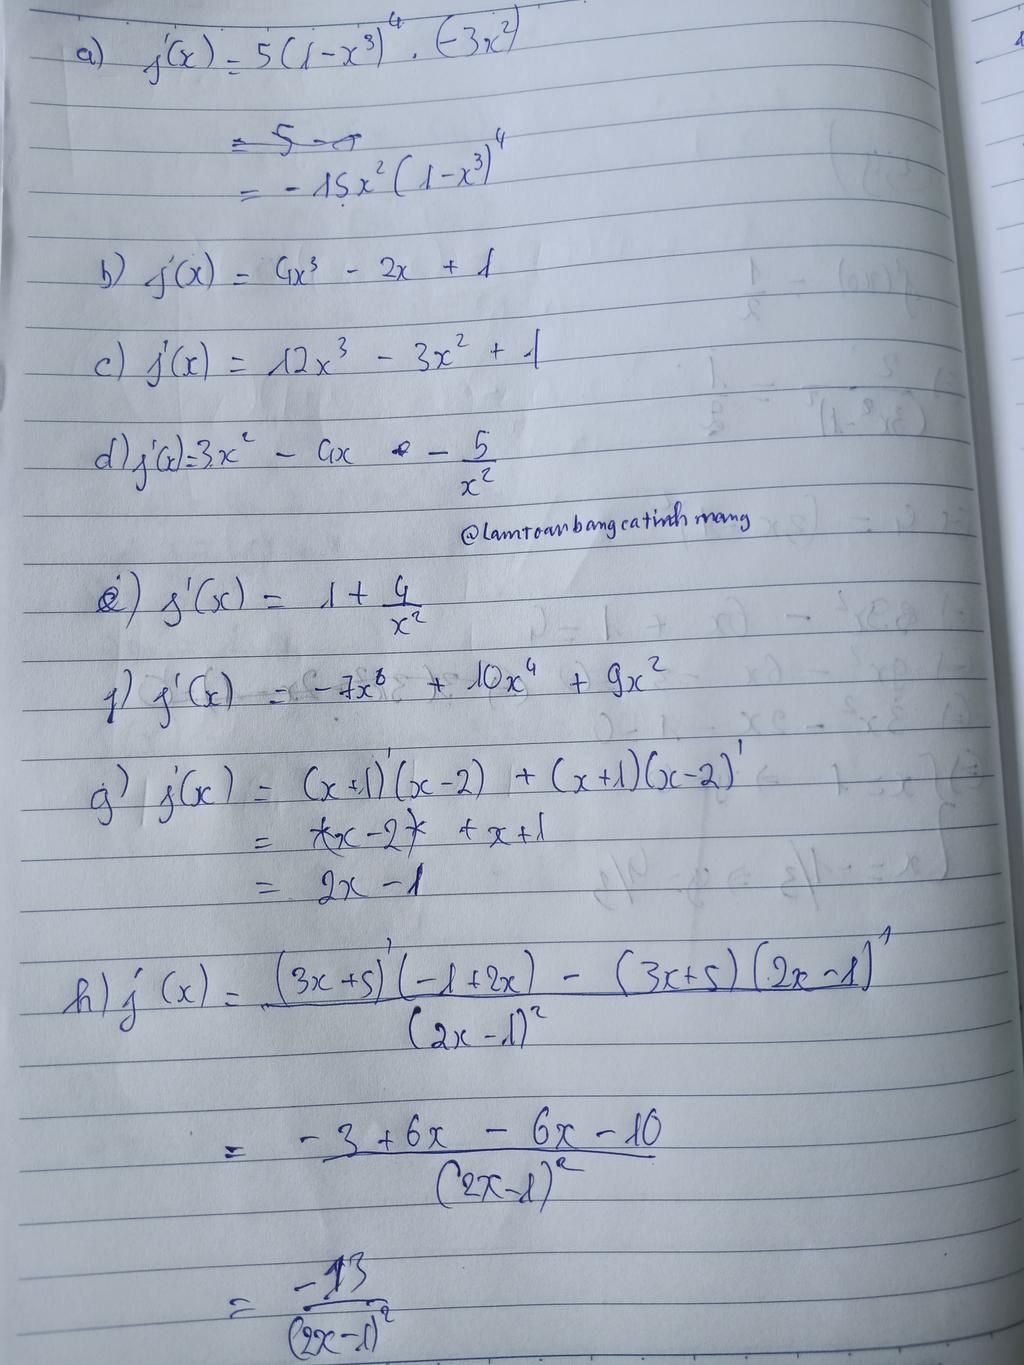 a) f'(x) = 5(1-x³)⁴ . (-3x²)
= 5
= -15x² (1-x³)⁴
b) f'(x) = 4x³ - 2x + 1
c) f'(x) = 12x³ - 3x² + 1
d) f'(x)=3x² - 4x - 5/x²
@lamtoanbangcatinhmang
e) f'(x) = 1 + 4/x²
f) f'(x) = -7x⁶ + 10x⁴ + 9x²
g) f'(x) = (x+1)'(x-2) + (x+1)(x-2)'
= x-2 + x+1
= 2x - 1
h) f'(x) = (3x+5)'(-1+2x) - (3x+5)(2x-1)'
(2x-1)²
= -3+6x - 6x - 10
(2x-1)²
= -13
(2x-1)²